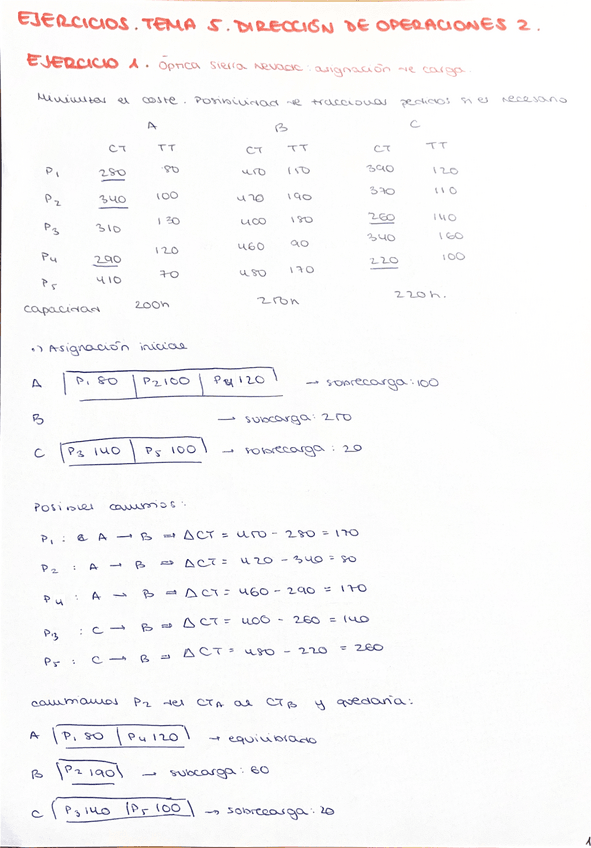 EJERCICIOS. TEMA 5. DIRECCIÓN DE OPERACIONES 2.
EJERCICIO 1. Óptica Sierra Nevada: asignación de carga.
Minimizar el coste. Posibilidad de fraccionar pedidos si es necesario
A B C
CT TT CT TT CT TT
P1 280 80 450 150 390 120
P2 340 100 420 190 370 110
P3 310 130 400 180 260 140
P4 290 120 460 90 340 160
P5 410 70 480 170 220 100
capacidad 200h 250h 220h.
·) Asignación inicial
A P1 80 P2 100 P4 120 → sobrecarga: 100
B → subcarga: 250
C P3 140 P5 100 → sobrecarga: 20
Posibles cambios:
P1 : A → B ⇒ ΔCT = 450 - 280 = 170
P2 : A → B ⇒ ΔCT = 420 - 340 = 80
P4 : A → B ⇒ ΔCT = 460 - 290 = 170
P3 : C → B ⇒ ΔCT = 400 - 260 = 140
P5 : C → B ⇒ ΔCT = 480 - 220 = 260
cambiamos P2 del CTA al CTB y quedaría:
A P1 80 P4 120 → equilibrado
B P2 190 → subcarga: 60
C P3 140 P5 100 → sobrecarga: 20
1